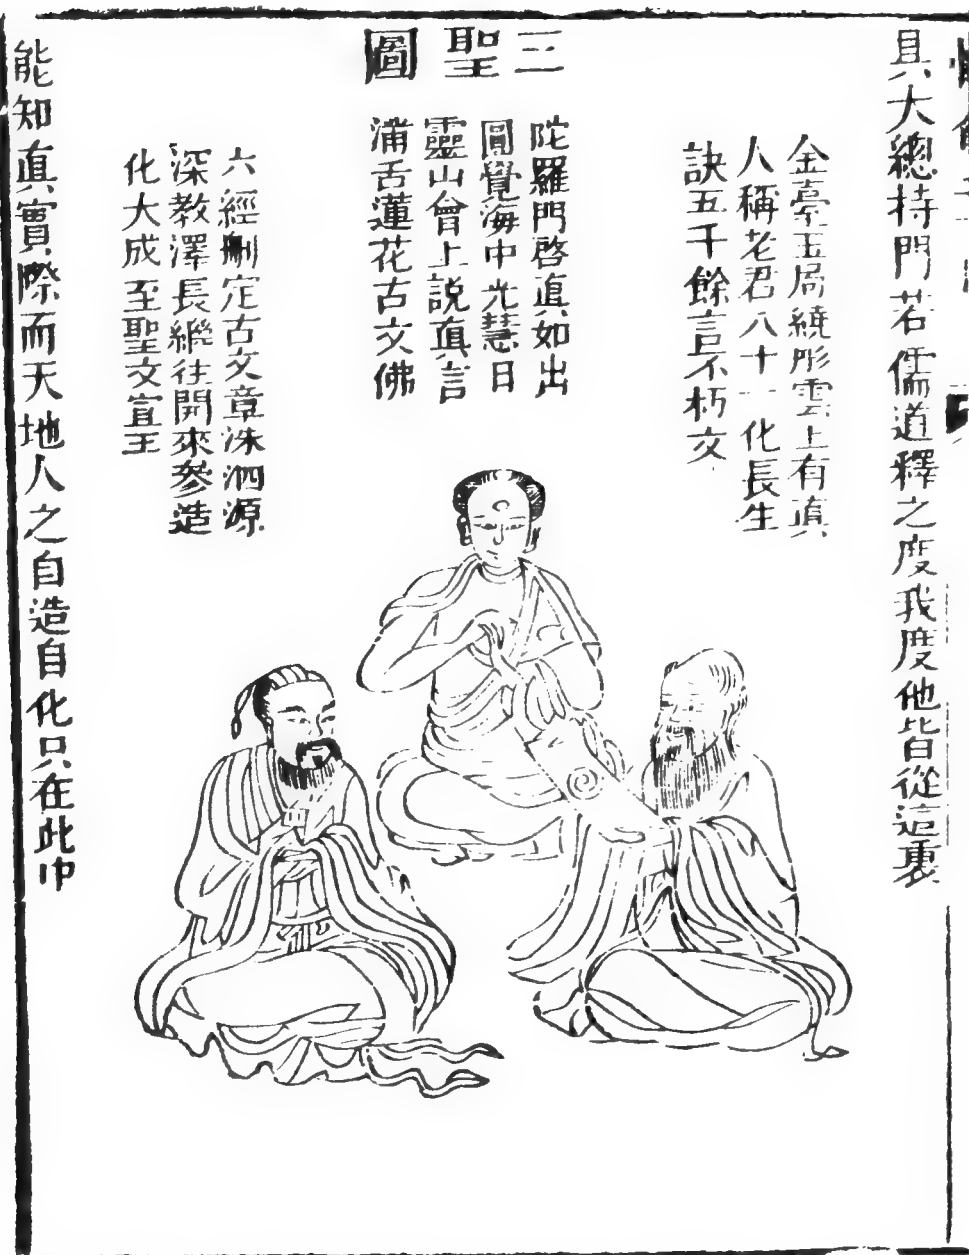 具大總持門若儒道釋之度我度他皆從這裏
三聖圖
金臺玉局繞彤雲上有眞
人稱老君八十一化長生
訣五千餘言不朽文
陀羅門啓眞如出
圓覺海中光慧日
靈山會上説眞言
滿舌蓮花古文佛
六經刪定古文章洙泗源
深教澤長繼往開來參造
化大成至聖文宣王
能知眞實際而天地人之自造自化只在此中